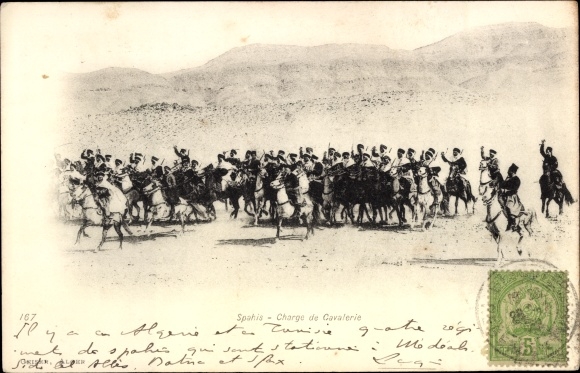 167
Spahis - Charge de Cavalerie
Il y a en Algerie et en Tunisie quatre régi
ments de spahis qui sont stationnés à Médéah
GEISER, ALGER
Sidi bel Abbès. Batna et Sfax.
5